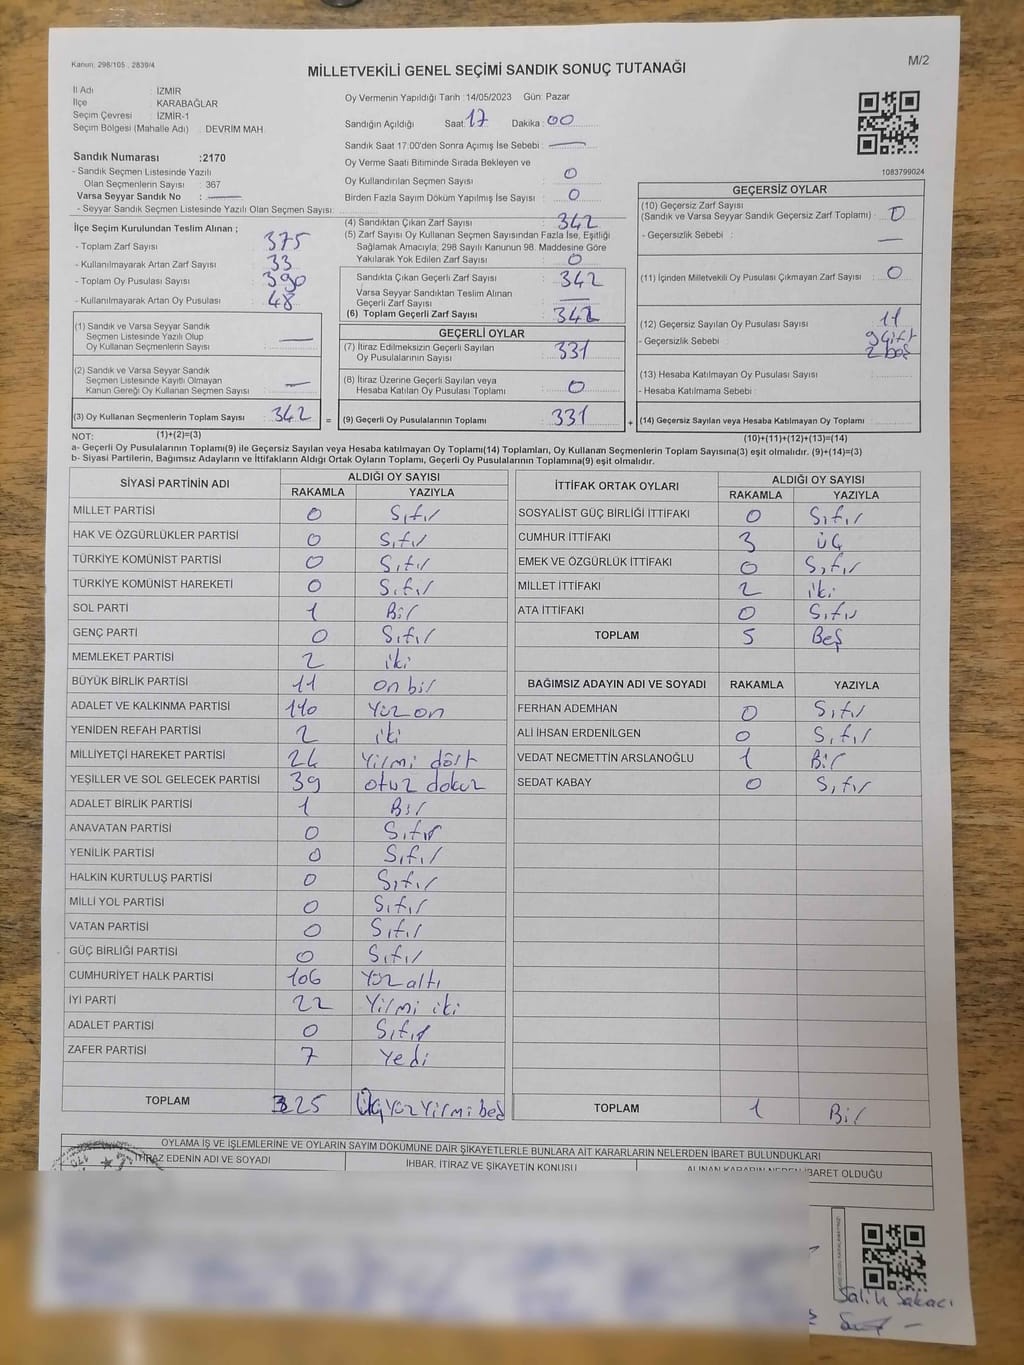 Kanun: 298/105 , 2839/4
M/2
MİLLETVEKİLİ GENEL SEÇİMİ SANDIK SONUÇ TUTANAĞI
İl Adı : İZMİR
İlçe : KARABAĞLAR
Seçim Çevresi : İZMİR-1
Seçim Bölgesi (Mahalle Adı) : DEVRİM MAH.
Sandık Numarası :2170
- Sandık Seçmen Listesinde Yazılı
Olan Seçmenlerin Sayısı : 367
Varsa Seyyar Sandık No : —
- Seyyar Sandık Seçmen Listesinde Yazılı Olan Seçmen Sayısı:
Oy Vermenin Yapıldığı Tarih :14/05/2023 Gün: Pazar
Sandığın Açıldığı Saat: 17 Dakika : 00
Sandık Saat 17:00'den Sonra Açımış İse Sebebi : —
Oy Verme Saati Bitiminde Sırada Bekleyen ve
Oy Kullandırılan Seçmen Sayısı : 0
Birden Fazla Sayım Döküm Yapılmış İse Sayısı : 0
1083799024
İlçe Seçim Kurulundan Teslim Alınan ;
- Toplam Zarf Sayısı : 375
- Kullanılmayarak Artan Zarf Sayısı : 33
- Toplam Oy Pusulası Sayısı : 390
- Kullanılmayarak Artan Oy Pusulası : 48
(1) Sandık ve Varsa Seyyar Sandık
Seçmen Listesinde Yazılı Olup
Oy Kullanan Seçmenlerin Sayısı : —
(2) Sandık ve Varsa Seyyar Sandık
Seçmen Listesinde Kayıtlı Olmayan
Kanun Gereği Oy Kullanan Seçmen Sayısı : —
(3) Oy Kullanan Seçmenlerin Toplam Sayısı : 342 =
(4) Sandıktan Çıkan Zarf Sayısı : 342
(5) Zarf Sayısı Oy Kullanan Seçmen Sayısından Fazla İse, Eşitliği
Sağlamak Amacıyla; 298 Sayılı Kanunun 98. Maddesine Göre
Yakılarak Yok Edilen Zarf Sayısı : 0
Sandıkta Çıkan Geçerli Zarf Sayısı : 342
Varsa Seyyar Sandıktan Teslim Alınan
Geçerli Zarf Sayısı : —
(6) Toplam Geçerli Zarf Sayısı : 342
GEÇERLİ OYLAR
(7) İtiraz Edilmeksizin Geçerli Sayılan
Oy Pusulalarının Sayısı : 331
(8) İtiraz Üzerine Geçerli Sayılan veya
Hesaba Katılan Oy Pusulası Toplamı : 0
(9) Geçerli Oy Pusulalarının Toplamı : 331 +
GEÇERSİZ OYLAR
(10) Geçersiz Zarf Sayısı
(Sandık ve Varsa Seyyar Sandık Geçersiz Zarf Toplamı) : 0
- Geçersizlik Sebebi : —
(11) İçinden Milletvekili Oy Pusulası Çıkmayan Zarf Sayısı : 0
(12) Geçersiz Sayılan Oy Pusulası Sayısı : 11
- Geçersizlik Sebebi : 9 çift
2 boş
(13) Hesaba Katılmayan Oy Pusulası Sayısı :
- Hesaba Katılmama Sebebi :
(14) Geçersiz Sayılan veya Hesaba Katılmayan Oy Toplamı :
NOT: (1)+(2)=(3)
(10)+(11)+(12)+(13)=(14)
a- Geçerli Oy Pusulalarının Toplamı(9) ile Geçersiz Sayılan veya Hesaba katılmayan Oy Toplamı(14) Toplamları, Oy Kullanan Seçmenlerin Toplam Sayısına(3) eşit olmalıdır. (9)+(14)=(3)
b- Siyasi Partilerin, Bağımsız Adayların ve İttifakların Aldığı Ortak Oyların Toplamı, Geçerli Oy Pusulalarının Toplamına(9) eşit olmalıdır.
SİYASİ PARTİNİN ADI ALDIĞI OY SAYISI
RAKAMLA YAZIYLA
MİLLET PARTİSİ 0 Sıfır
HAK VE ÖZGÜRLÜKLER PARTİSİ 0 Sıfır
TÜRKİYE KOMÜNİST PARTİSİ 0 Sıfır
TÜRKİYE KOMÜNİST HAREKETİ 0 Sıfır
SOL PARTİ 1 Bir
GENÇ PARTİ 0 Sıfır
MEMLEKET PARTİSİ 2 iki
BÜYÜK BİRLİK PARTİSİ 11 on bir
ADALET VE KALKINMA PARTİSİ 110 Yüz on
YENİDEN REFAH PARTİSİ 2 iki
MİLLİYETÇİ HAREKET PARTİSİ 24 Yirmi dört
YEŞİLLER VE SOL GELECEK PARTİSİ 39 otuz dokuz
ADALET BİRLİK PARTİSİ 1 Bir
ANAVATAN PARTİSİ 0 Sıfır
YENİLİK PARTİSİ 0 Sıfır
HALKIN KURTULUŞ PARTİSİ 0 Sıfır
MİLLİ YOL PARTİSİ 0 Sıfır
VATAN PARTİSİ 0 Sıfır
GÜÇ BİRLİĞİ PARTİSİ 0 Sıfır
CUMHURİYET HALK PARTİSİ 106 Yüz altı
İYİ PARTİ 22 Yirmi iki
ADALET PARTİSİ 0 Sıfır
ZAFER PARTİSİ 7 Yedi
TOPLAM 325 Üçyüz Yirmi beş
İTTİFAK ORTAK OYLARI ALDIĞI OY SAYISI
RAKAMLA YAZIYLA
SOSYALİST GÜÇ BİRLİĞİ İTTİFAKI 0 Sıfır
CUMHUR İTTİFAKI 3 üç
EMEK VE ÖZGÜRLÜK İTTİFAKI 0 Sıfır
MİLLET İTTİFAKI 2 iki
ATA İTTİFAKI 0 Sıfır
TOPLAM 5 Beş
BAĞIMSIZ ADAYIN ADI VE SOYADI RAKAMLA YAZIYLA
FERHAN ADEMHAN 0 Sıfır
ALİ İHSAN ERDENİLGEN 0 Sıfır
VEDAT NECMETTİN ARSLANOĞLU 1 Bir
SEDAT KABAY 0 Sıfır
TOPLAM 1 Bir
OYLAMA İŞ VE İŞLEMLERİNE VE OYLARIN SAYIM DÖKÜMÜNE DAİR ŞİKAYETLERLE BUNLARA AİT KARARLARIN NELERDEN İBARET BULUNDUKLARI
İTİRAZ EDENİN ADI VE SOYADI İHBAR, İTİRAZ VE ŞİKAYETİN KONUSU ALINAN KARARIN NEDEN İBARET OLDUĞU
Salih Sakacı